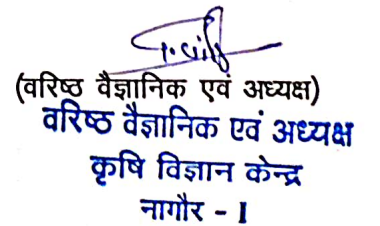 (वरिष्ठ वैज्ञानिक एवं अध्यक्ष)
वरिष्ठ वैज्ञानिक एवं अध्यक्ष
कृषि विज्ञान केन्द्र
नागौर - I